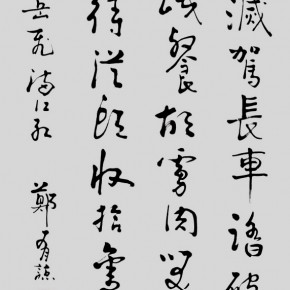 滅駕長車踏破
餐胡虜肉笑
待從頭收拾舊
岳飛滿江紅 鄭有諒